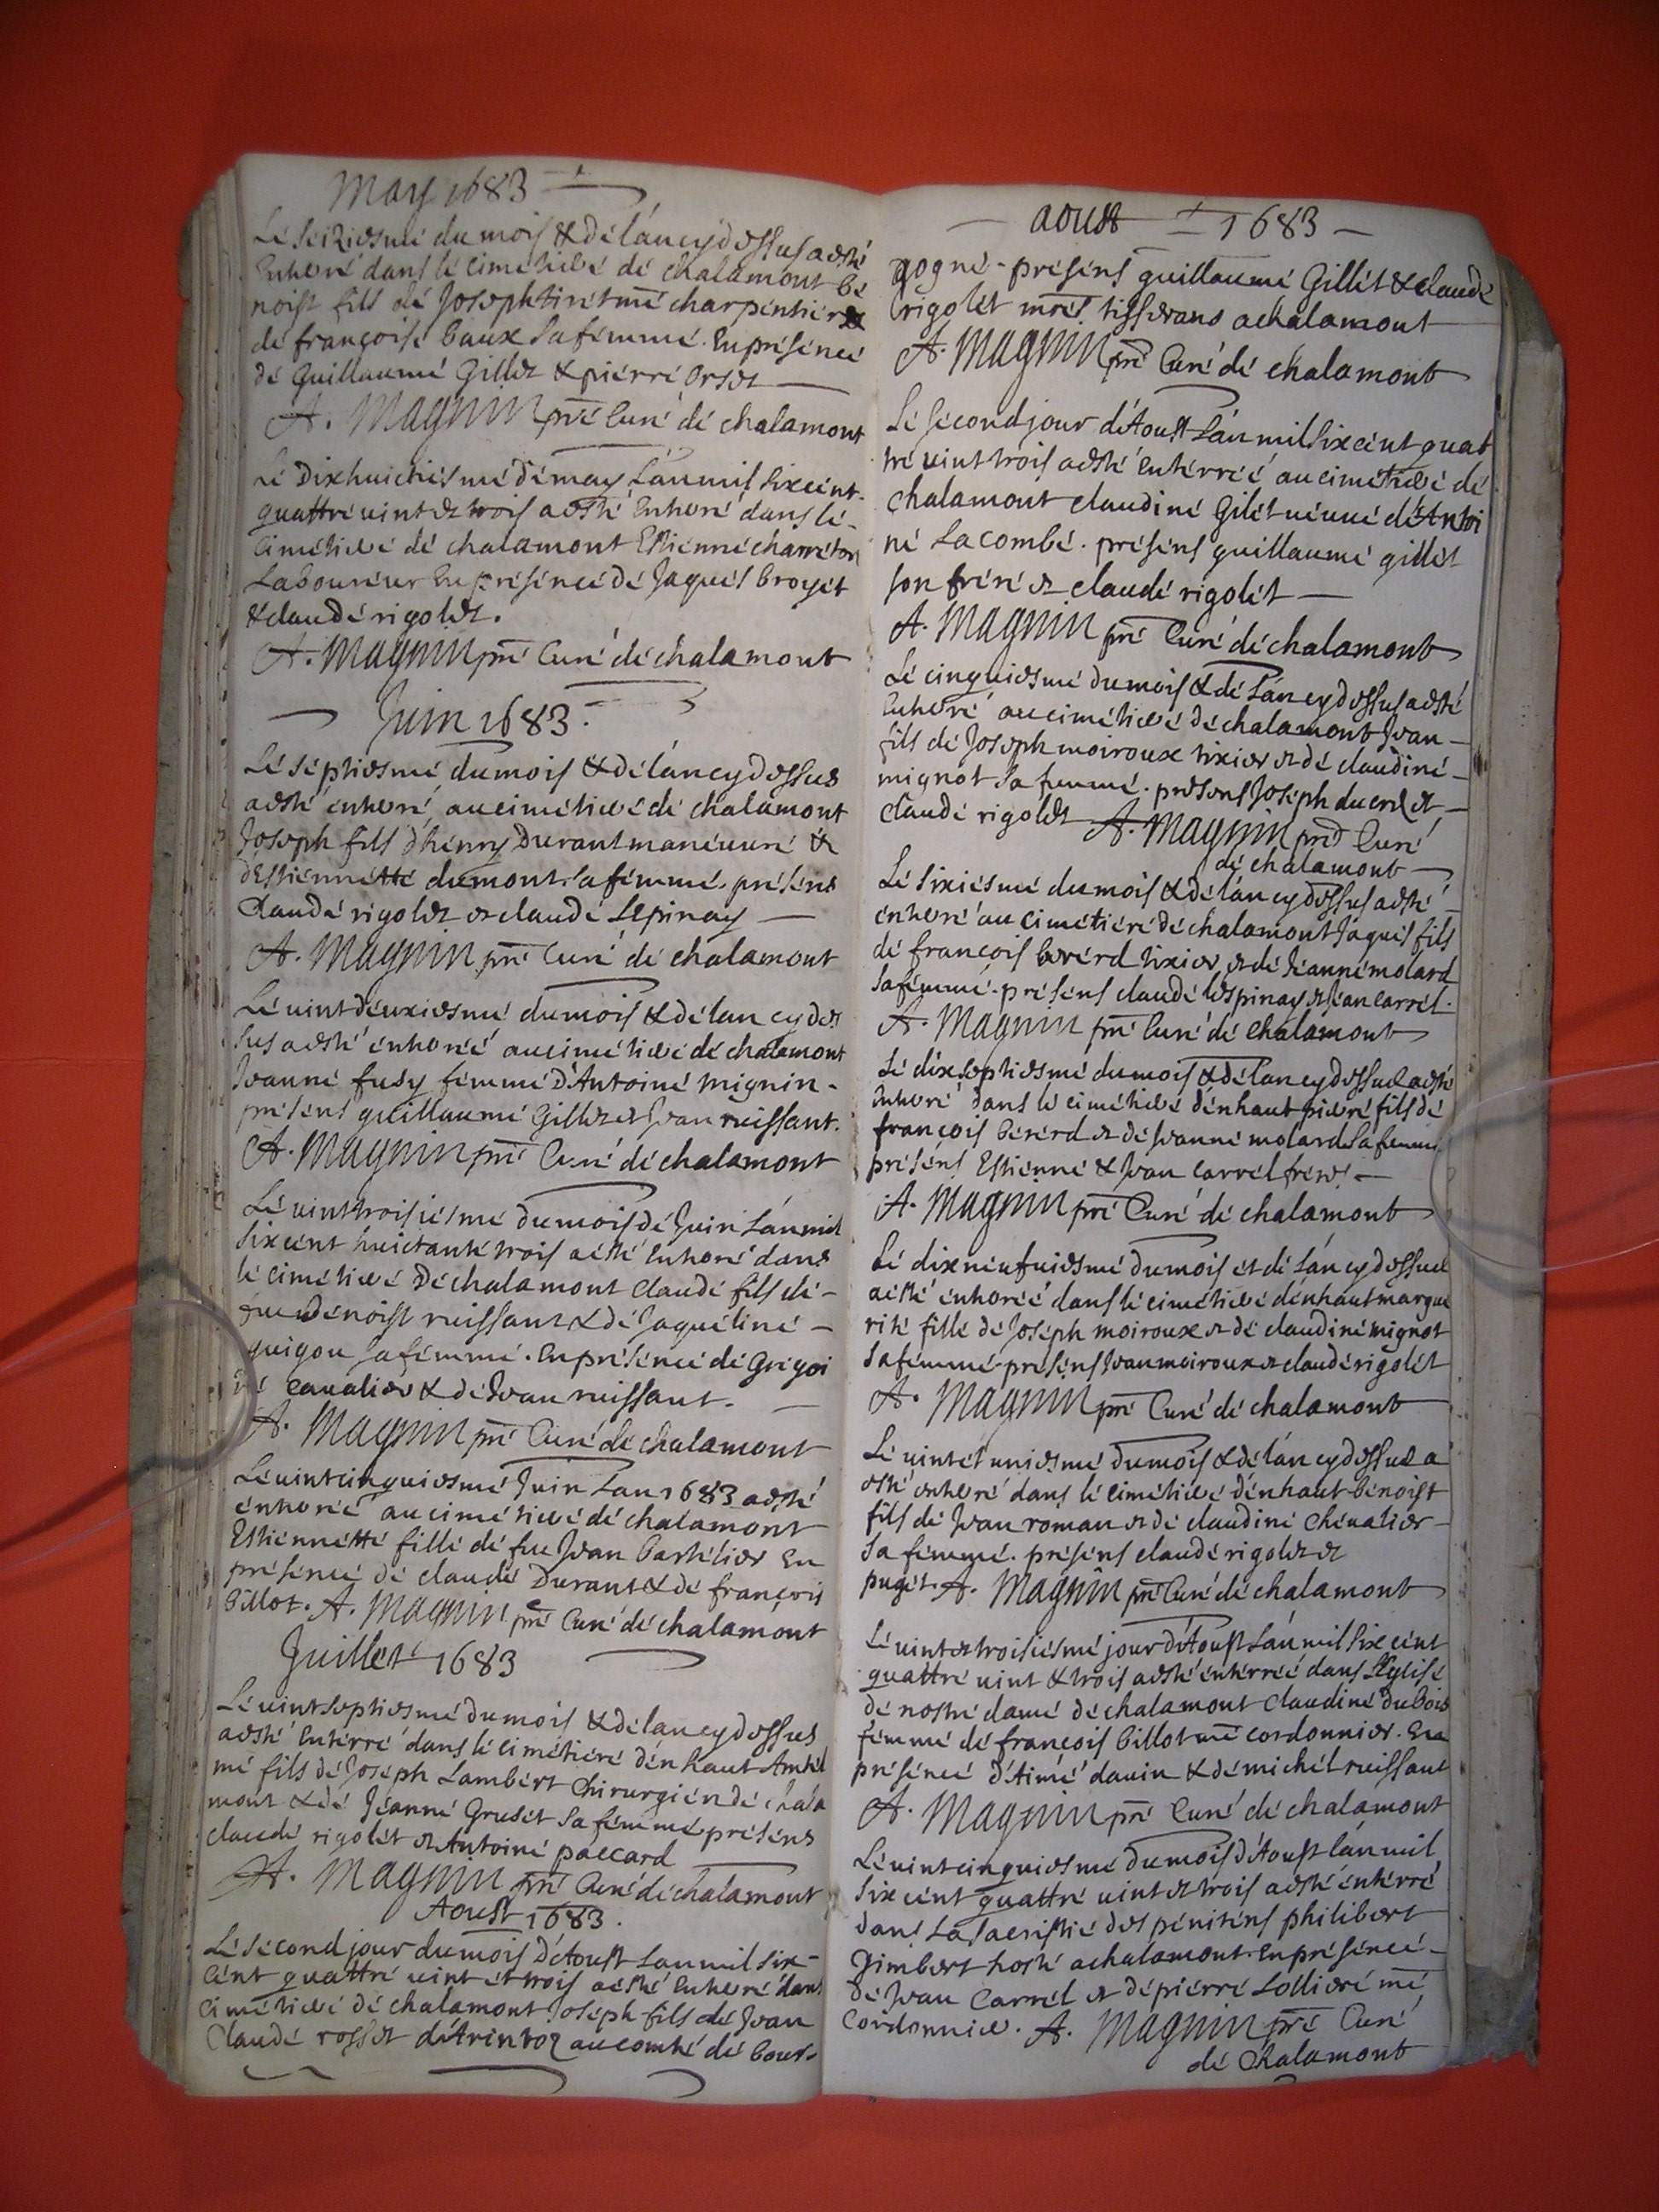 May 1683
Le seiziesme du mois & de lan cy dessus a esté
enterré dans le cimetiere de chalamont be
noist fils de Joseph tiret mē charpentier &
de françoise baux sa femme. En presence
de Guillaume Gillet & pierre Orset
A. Magnin prē Curé de chalamont
Le Dixhuictiesme de may Lan mil six cent.
quattre vint et trois a esté enterré dans le
Cimetiere de chalamont Estienne charreton
Laboureur En presence de Jaques broyet
& claude rigolet.
A. Magnin prē Curé de chalamont
Juin 1683.
Le septiesme du mois & de lan cy dessus
a esté enterré au cimetiere de chalamont
Joseph fils d'henry Durant maneuure &
d'Estiennette dumont sa femme. presens
Claude rigolet et claude Lepinay
A. Magnin prē Curé de chalamont
Le vint deuxiesme du mois & de lan cy des
sus a esté enterreé au cimetiere de chalamont
Jeanne fusy femme D'Antoine mignin.
presens guillaume Gillet et Jean ruissant.
A. Magnin prē Curé de chalamont
Le vint troisiesme du mois de Juin Lan mil
six cent huictante trois a esté enterré dans
le cimetiere De chalamont Claude fils de
feu benoist ruissant & de Jaqueline
guigou sa femme. En presence de Gregoi
re caualier & de Jean ruissant.
A. Magnin prē Curé de chalamont
Le vint cinquiesme Juin Lan 1683 a esté
enterreé au cimetiere de chalamont
Estiennette fille de feu Jean bastelier En
presence de claude Durant & de françois
billot. A. Magnin prē Curé de chalamont
Juillet 1683
Le vint septiesme du mois & de lan cy dessus
a esté enterré dans le cimetiere d'en haut Anthel
me fils de Joseph Lambert Chirurgien de chala
mont & de Jeanne Gruset sa femme presens
claude rigolet et Antoine paccard
A. Magnin prē Curé de chalamont
Aoust 1683.
Le second jour du mois d'Aoust Lan mil six
cent quattre vint et trois a esté enterré dans
Cimetiere de chalamont Joseph fils de Jean
Claude rosset au comté de bour-
aoust 1683
gogne. presens guillaume Gillet & claude
rigolet mres tisserans a chalamont
A. Magnin prē Curé de chalamont
Le second jour d'Aoust Lan mil six cent quat
tre vint trois a esté enterreé au cimetiere de
chalamont claudine Gilet veuue d'Antoi
ne Lacombe. presens guillaume gillet
son frere et claude rigolet
A. Magnin prē Curé de chalamont
Le cinquiesme du mois & de Lan cy dessus a esté
enterré au cimetiere de chalamont Jean
fils de Joseph moiroux tixier et de claudine
mignot sa femme. presens Joseph ducret et
claude rigolet A. Magnin prē Curé
de chalamont
Le sixiesme du mois & de lan cy dessus a esté
enterré au cimetiere de chalamont Jaques fils
de francois berérd tixier et de Jeanne molard
sa femme. presens claude lespinay et Jean carrel.
A. Magnin prē Curé de chalamont
Le dix septiesme du mois & de lan cy dessus a esté
enterré dans le cimetiere d'enhaut piere fils de
françois bererd et de Jeanne molard sa femme
presens Estienne & Jean carrel freres
A. Magnin prē Curé de chalamont
Le dix neufuiesme du mois et de Lan cy dessus
a esté enterreé dans le cimetiere d'enhaut margue
rite fille de Joseph moiroux et de claudine mignot
sa femme. presens Jean moiroux et claude rigolet
A. Magnin prē Curé de chalamont
Le vint et uniesme du mois & de lan cy dessus a
esté enterré dans le cimetiere d'enhaut benoist
fils de Jean roman et de claudine Cheualier
sa femme. presens claude rigolet et
puget. A. Magnin prē Curé de chalamont
Le vint et troisiesme jour d'Aoust Lan mil six cent
quattre vint & trois a esté enterreé dans L'Eglise
de nostre dame de chalamont Claudine Dubois
femme de françois billot mē cordonnier. En
presence d'Aimé dauin & de michel ruissant
A. Magnin prē Curé de chalamont
Le vint cinquiesme du mois d'Aoust lan mil
six cent quattre vint et trois a esté enterré
dans La sacristie des penitens philibert
Gimbert hoste a chalamont. En presence
de Jean Carrel et de pierre Lolliere mē
Cordonnier. A. Magnin prē Curé
de Chalamont